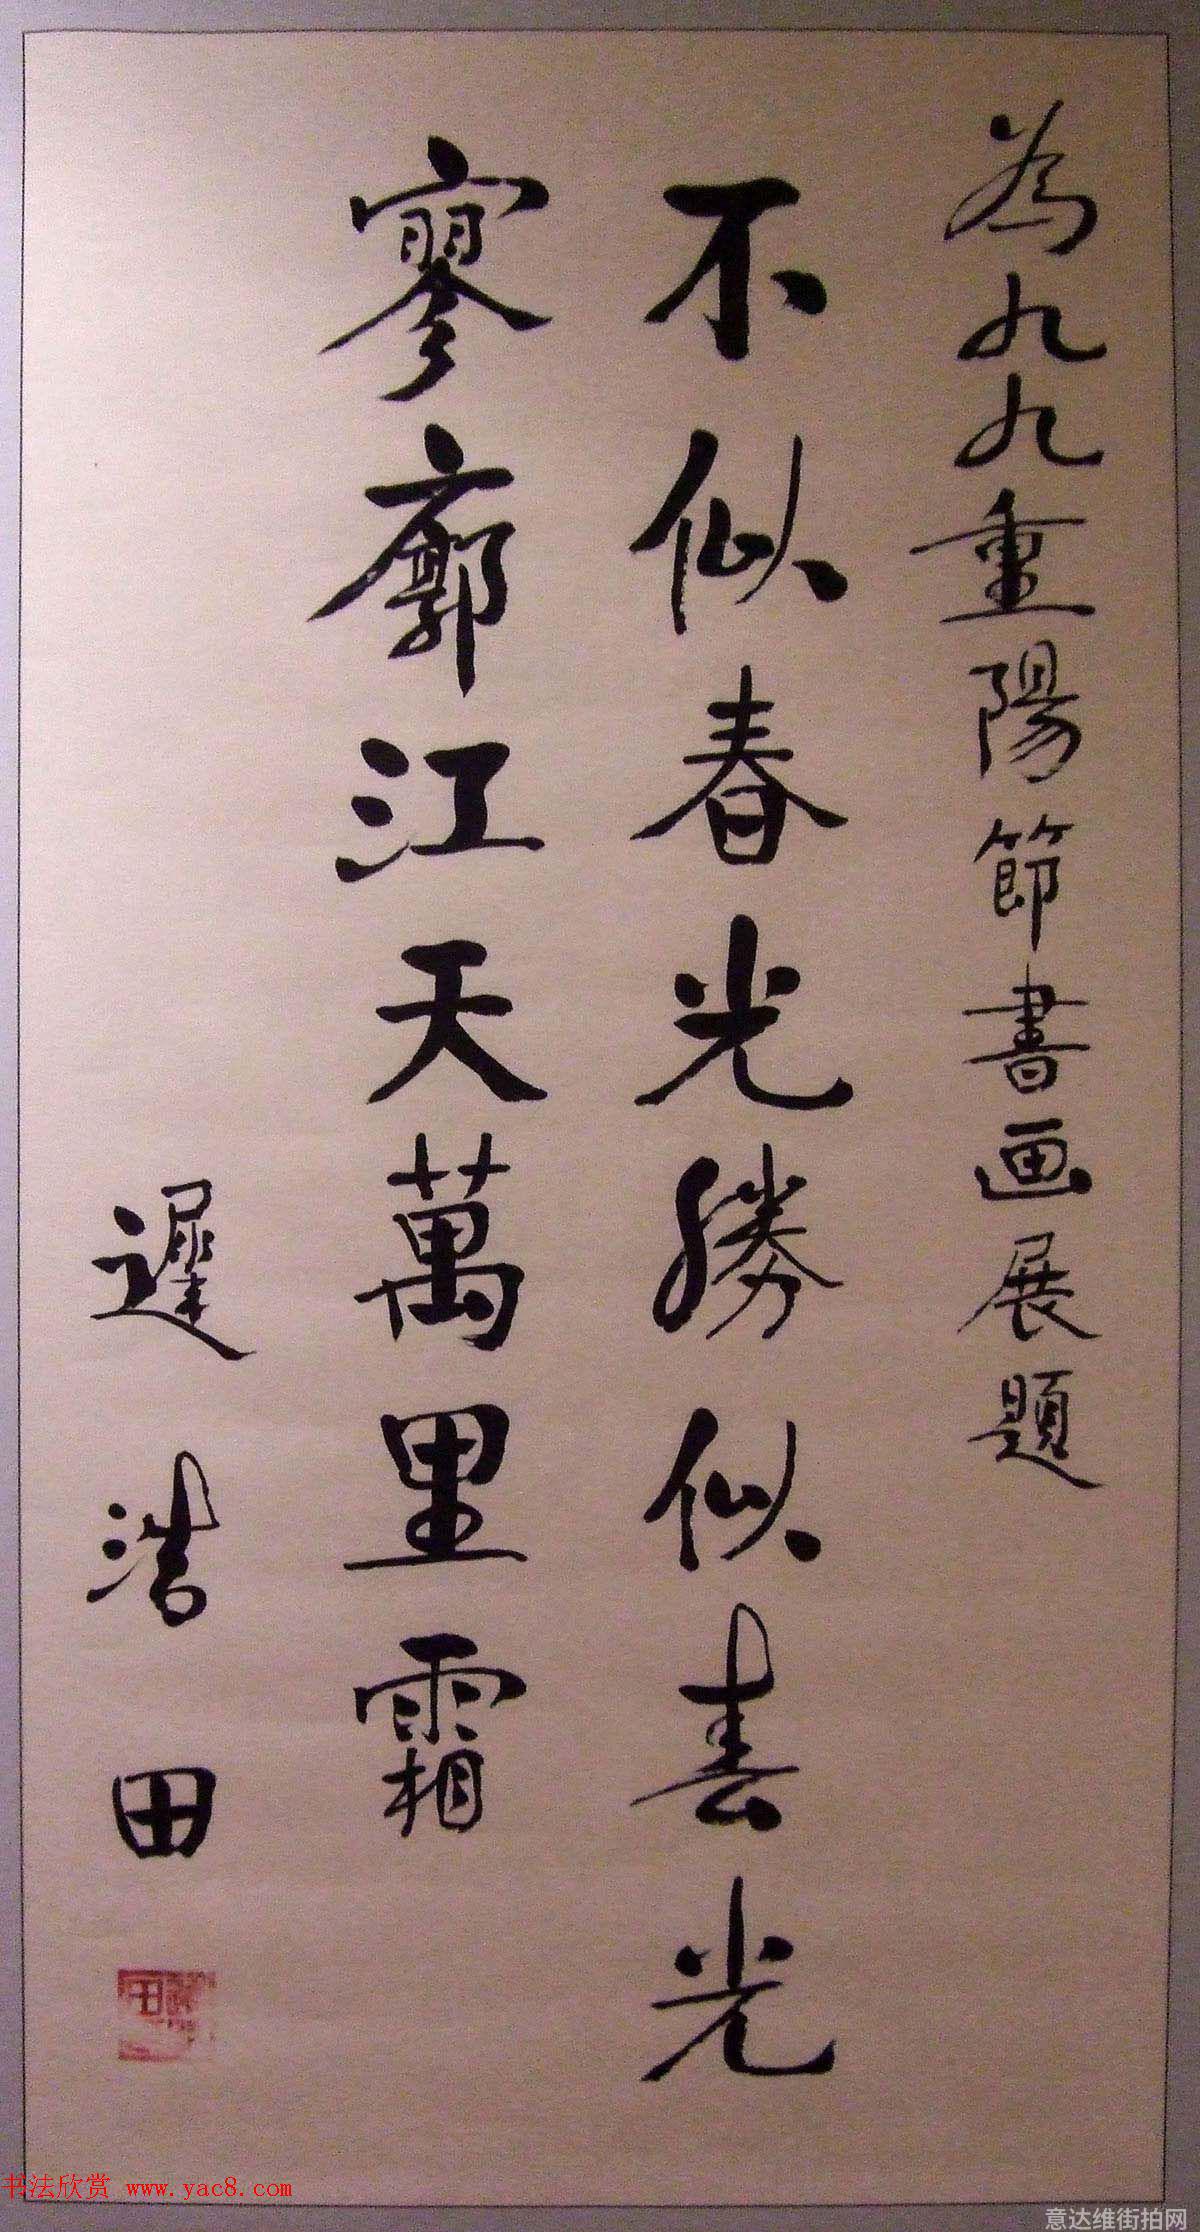 為九九重陽節書画展題
不似春光勝似春光
寥廓江天萬里霜
遲浩田
书法欣赏 www.yac8.com
意达维街拍网